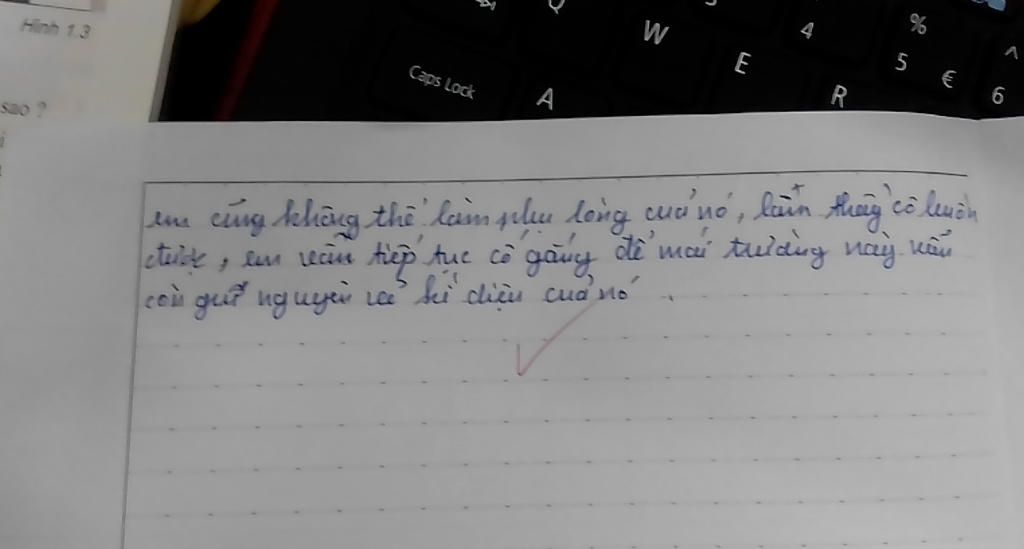 Hình 1.3
sao ?
Caps Lock
Q
W
E
R
A
4
%
5 €
^
6
em cũng không thể làm phụ lòng của nó, lẫn thầy cô luôn
được, em vẫn tiếp tục cố gắng để mái trường này vẫn
còn giữ nguyên vẻ kì diệu của nó.